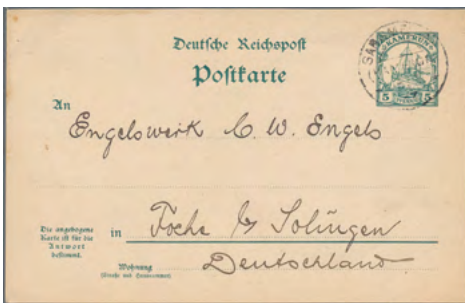 Deutsche Reichspost
Postkarte
KAMERUN
5 5
An
Engelswerk C. W. Engels
Die angebogene
Karte ist für die
Antwort
bestimmt.
in Foche b/ Solingen
Deutschland
Wohnung
(Straße und Hausnummer)